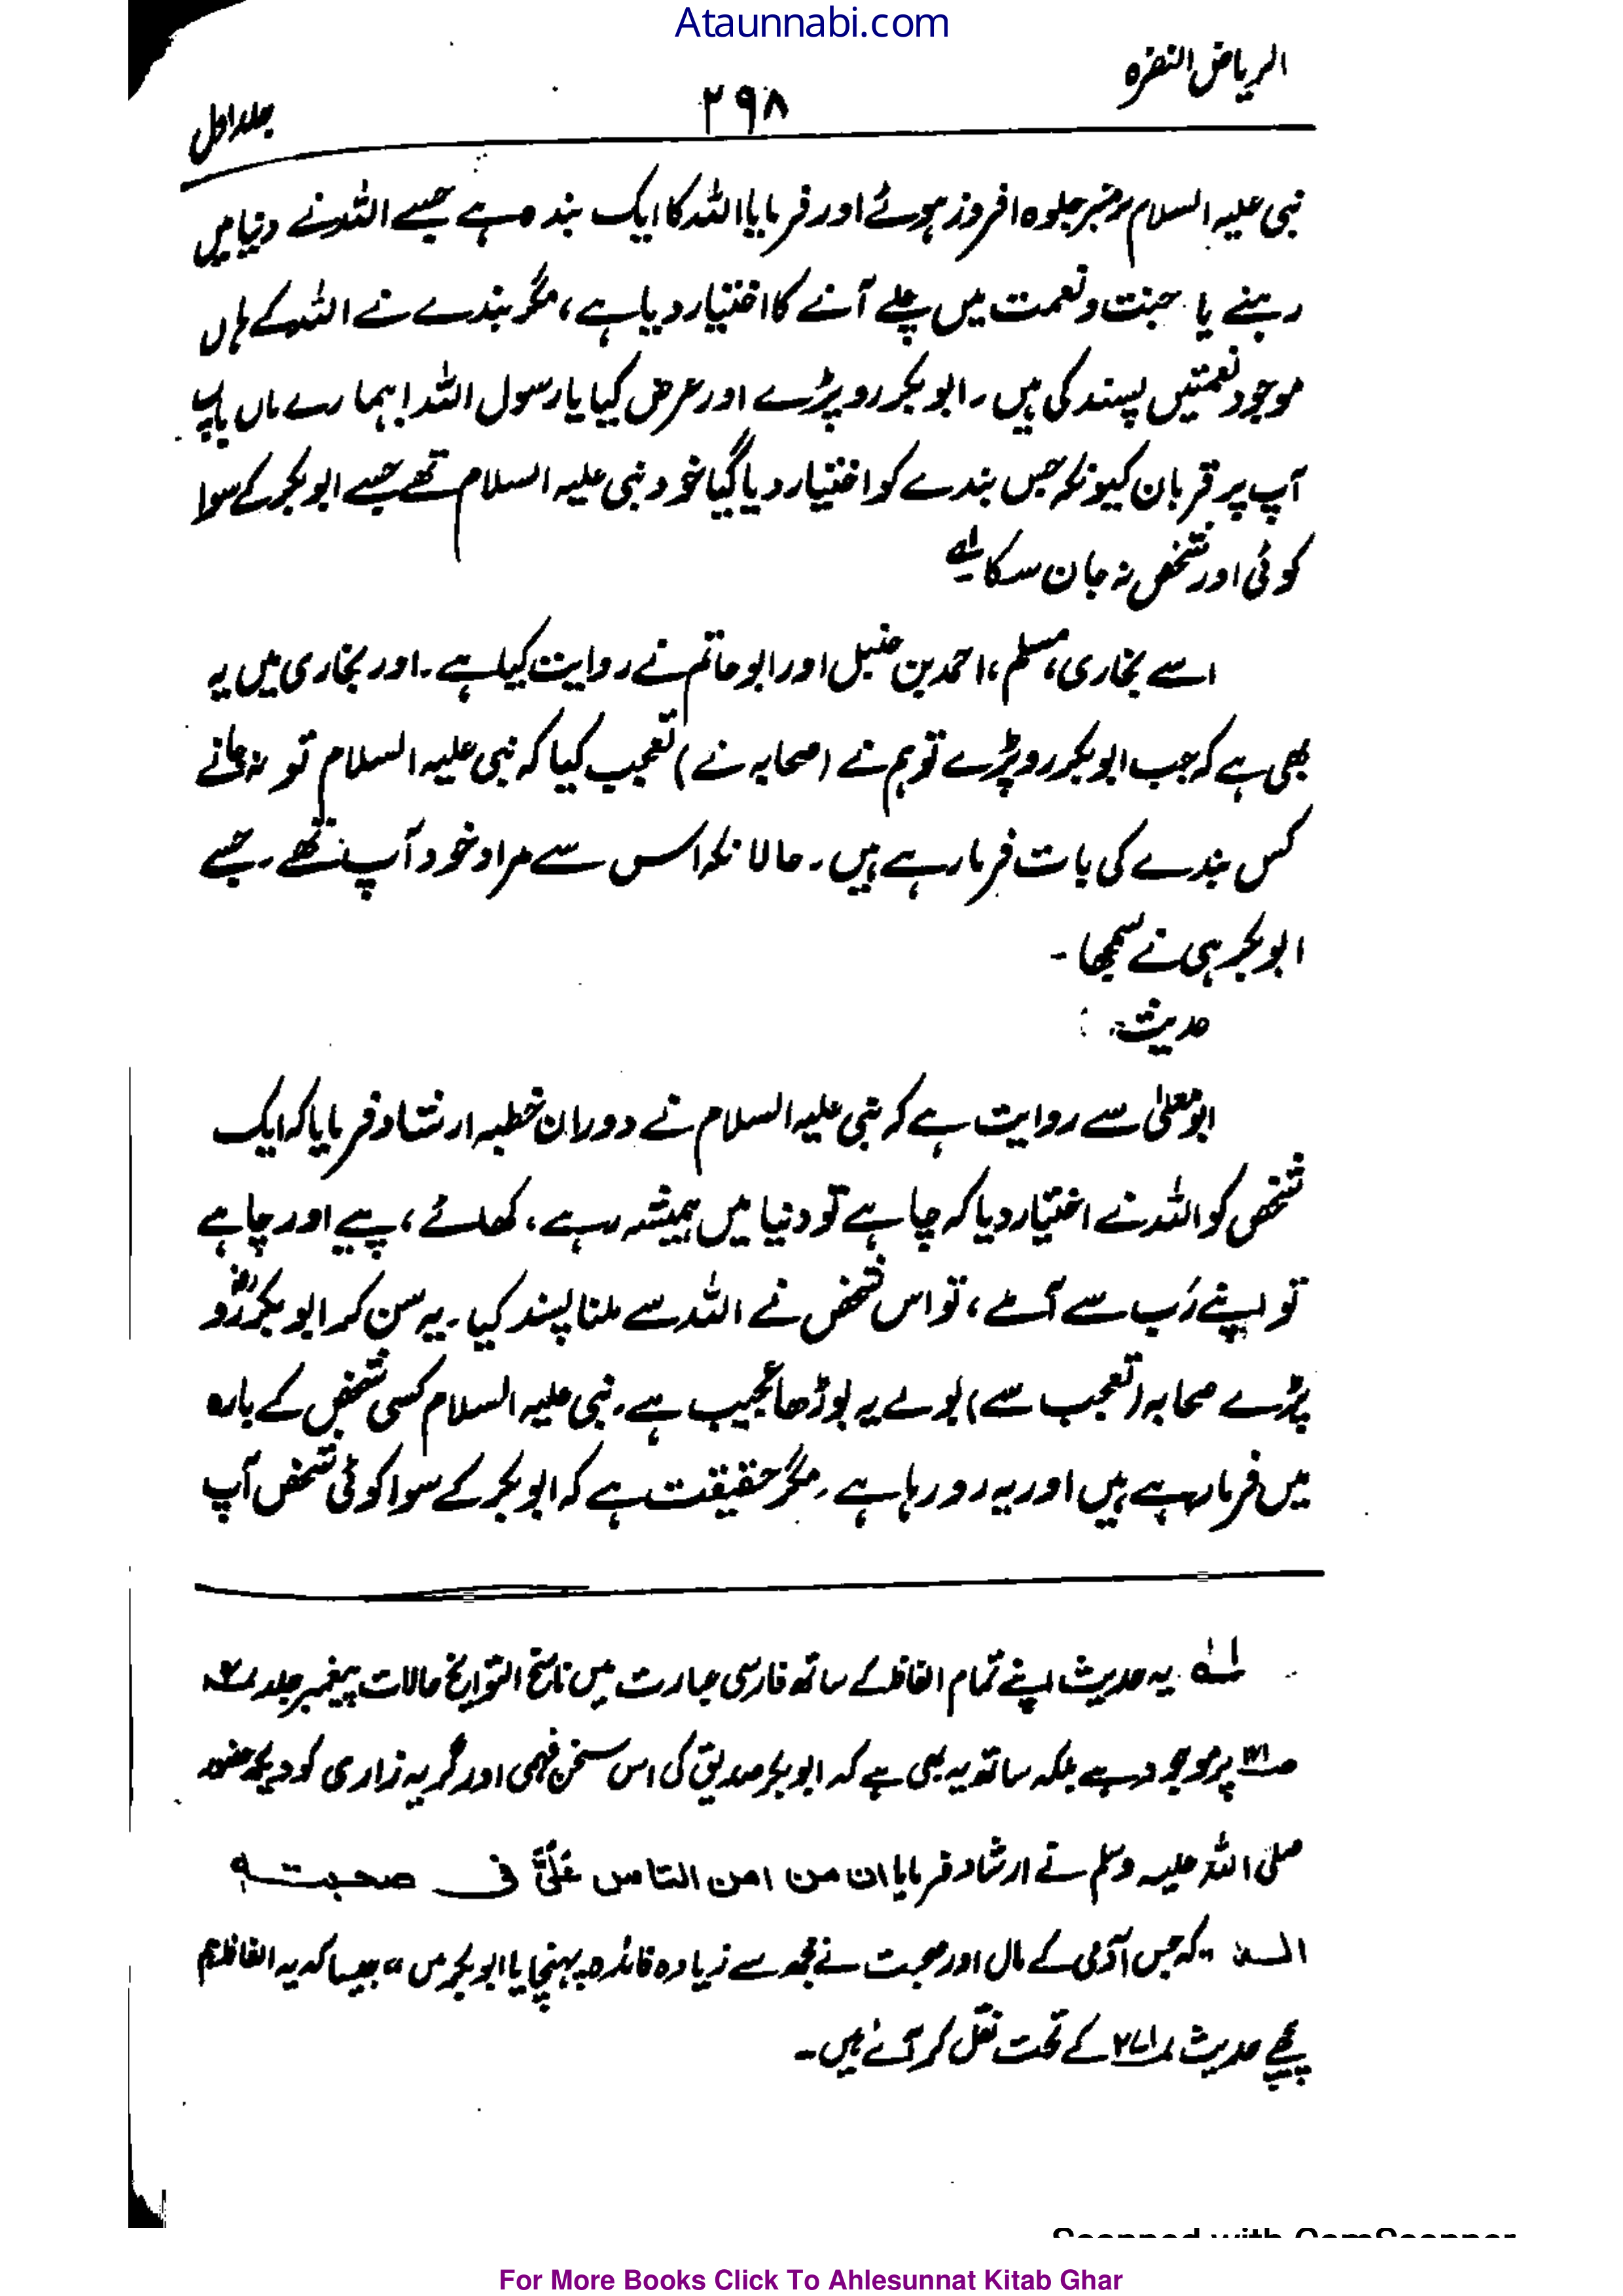 Ataunnabi.com
الریاض النضرہ
۲۹۸
جلد اول
نبی علیہ السلام بر منبر جلوہ افروز ہوئے اور فرمایا اللہ کا ایک بندہ ہے جسے اللہ نے دنیا میں
رہنے یا جنت و نعمت میں چلے آنے کا اختیار دیا ہے، مگر بندے نے اللہ کے ہاں
موجود نعمتیں پسند کی ہیں۔ ابو بکر رو پڑے اور عرض کیا یا رسول اللہ! ہمارے ماں باپ
آپ پر قربان کیونکہ جس بندے کو اختیار دیا گیا خود نبی علیہ السلام تھے جسے ابو بکر کے سوا
کوئی اور شخص نہ جان سکا۔ لہ
اسے بخاری، مسلم، احمد بن حنبل اور ابو حاتم نے روایت کیا ہے۔ اور بخاری میں یہ
بھی ہے کہ جب ابو بکر رو پڑے تو ہم نے (صحابہ نے) تعجب کیا کہ نبی علیہ السلام تو نہ جانے
کس بندے کی بات فرما رہے ہیں۔ حالانکہ اس سے مراد خود آپ تھے۔ جسے
ابو بکر ہی نے سمجھا۔
حدیث :
ابو معلیٰ سے روایت ہے کہ نبی علیہ السلام نے دوران خطبہ ارشاد فرمایا کہ ایک
شخص کو اللہ نے اختیار دیا کہ چاہے تو دنیا میں ہمیشہ رہے، کھائے، پیے اور چاہے
تو اپنے رَب سے آملے، تو اس شخص نے اللہ سے ملنا پسند کیا۔ یہ سن کر ابو بکرؓ رو
پڑے صحابہ (تعجب سے) بولے یہ بوڑھا عجیب ہے۔ نبی علیہ السلام کسی شخص کے بارہ
میں فرما رہے ہیں اور یہ رو رہا ہے۔ مگر حقیقت ہے کہ ابو بکر کے سوا کوئی شخص آپ
لہ یہ حدیث اپنے تمام الفاظ کے ساتھ فارسی عبارت میں ناسخ التواریخ حالات پیغمبر جلد
پر موجود ہے بلکہ ساتھ یہ بھی ہے کہ ابو بکر صدیق کی اس سخن فہمی اور گریہ زاری کو دیکھ حضور
صلی اللہ علیہ وسلم نے ارشاد فرمایا ان من امن الناس عَلَیَّ فی صحبتہ
الخ "کہ جس آدمی کے مال اور صحبت نے مجھ سے زیادہ فائدہ پہنچایا ابو بکر ہیں" جیسا کہ یہ الفاظ ہم
پیچھے حدیث کے تحت نقل کر آئے ہیں۔
For More Books Click To Ahlesunnat Kitab Ghar